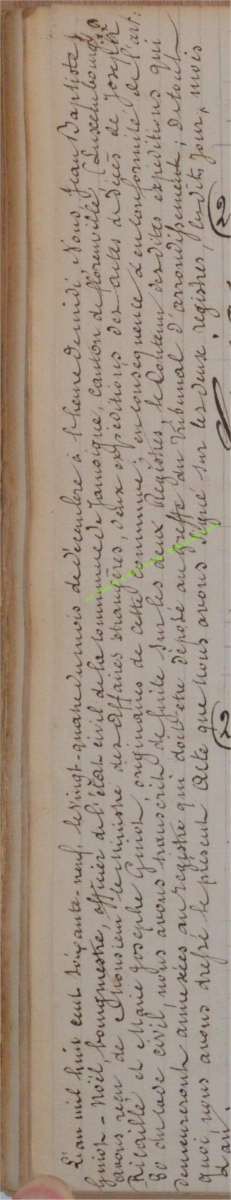 L'an mil huit cent soixante-neuf, le vingt-quatre du mois de décembre à l'heure de midi, Nous, Jean Baptiste
Guiot-Noël, bourgmestre, officier de l'état civil de la commune de Jamoigne, canton de florenville, (Luxembourg)
avons reçu de Monsieur le Ministre des affaires étrangères, deux expéditions des actes de décès de Joseph
Ricaille et Marie Josephe Guiot, originaires de cette commune; en conséquence & en conformité de l'art:
80 du code civil, nous avons transcrit de suite sur les deux Registres, le contenu des dites expéditions qui
demeureront annexées au registre qui doit être déposé au greffe du tribunal d'arrondissement; de tout
quoi, nous avons dressé le présent acte que nous avons signé sur les deux registres, les dits jour, mois
& an.